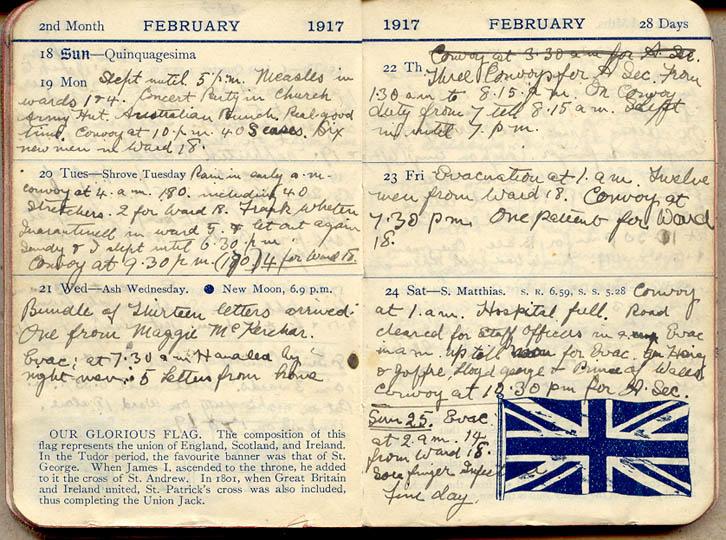 2nd Month FEBRUARY 1917
18 Sun—Quinquagesima
19 Mon Slept until 5 p.m. Measles in
wards 1 & 4. Concert Party in Church
Army Hut. Australian Bunch. Real good
time. Convoy at 10 p.m. 40 cases. Six
new men in Ward 18.
20 Tues—Shrove Tuesday Rain in early a.m.
convoy at 4. a.m. 180. including 40
Stretchers. 2 for Ward 18. Frank
in ward 5. & let out again
Sandy & I slept until 6.30 p.m.
Convoy at 9.30 p.m. (190) 4 for Ward 18.
21 Wed—Ash Wednesday. New Moon, 6.9 p.m.
Bundle of Thirteen letters arrived.
One from Maggie McKerchar.
Evac; at 7.30 a.m. Handled by
night men. 5 Letters from home
OUR GLORIOUS FLAG. The composition of this
flag represents the union of England, Scotland, and Ireland.
In the Tudor period, the favourite banner was that of St.
George. When James I. ascended to the throne, he added
to it the cross of St. Andrew. In 1801, when Great Britain
and Ireland united, St. Patrick's cross was also included,
thus completing the Union Jack.
1917 FEBRUARY 28 Days
Convoy at 3.30 a.m. for A. Sec.
22 Th Three Convoys for A Sec. From
1.30 a.m to 8.15 p.m. On Convoy
duty from 7 till 8.15 a.m. Slept
until 7. p.m.
23 Fri Evacuation at 1. a.m. Twelve
men from Ward 18. Convoy at
7.30 p.m. One patient for Ward
18.
24 Sat—S. Matthias. S. R. 6.59, S. S. 5.28 Convoy
at 1. a.m. Hospital full. Road
cleared for Staff Officers in Evac
in a.m. up till for Evac. Haig
& Joffre, Lloyd George & Prince of Wales
Convoy at 10.30 pm for A. Sec.
Sun 25. Evac.
at 2 a.m. 14
from Ward 18.
Sore finger
Fine day.